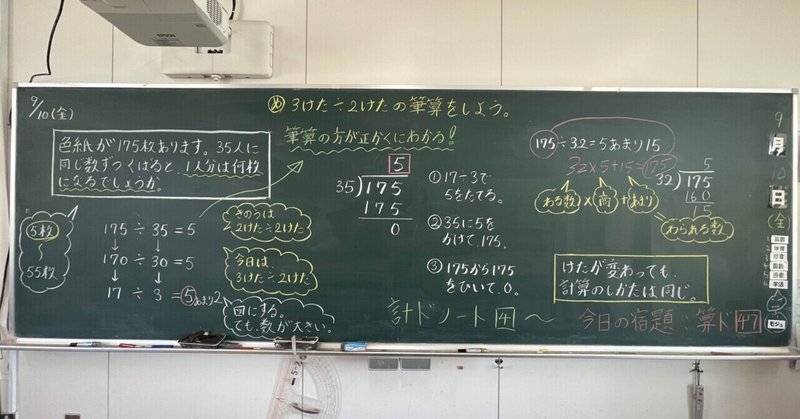 9/10(金)
色紙が175枚あります。35人に
同じ数ずつくばると、1人分は何枚
になるでしょうか。
5枚
55枚
175÷35=5
↓ ↓
170÷30=5
↓ ↓
17÷3=5あまり2
め 3けた÷2けたの筆算をしよう。
筆算の方が正かくにわかる!
きのうは
2けた÷2けた
今日は
3けた÷2けた
でも、数が大きい。
5
35)175
175
0
①17÷3で
5をたてる。
②35に5を
かけて、175。
③175から175
をひいて、0。
175÷32=5あまり15
32×5+15=175
わる数×商+あまり
わられる数
5
32)175
160
15
けたが変わっても、
計算のしかたは同じ。
計ドノート
～
今日の宿題:算ド
9
月
10
日
(金)
モジュ
EPSON